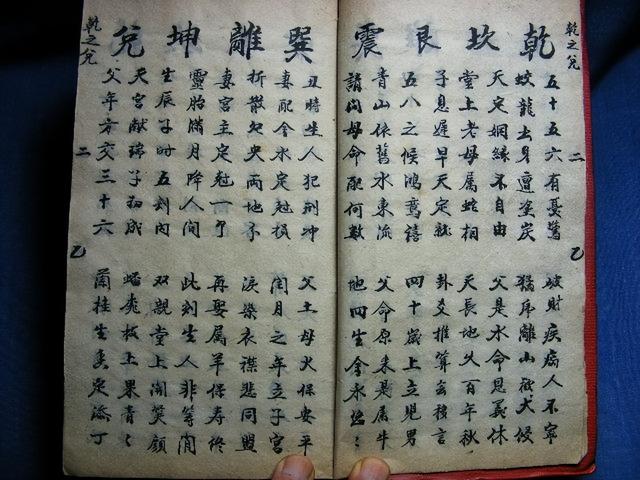 乾之兌 二 乙
乾 坎 艮 震
五十五六有憂驚 破財疾病人不寧
蛟龍出身遭塗炭 猛虎離山被犬侵
天定姻緣不自由 父是水命恩義休
堂上老母属蛇相 天長地久百年秋
子息遲早天定就 卦爻推算玄機言
五八之候鴻鸞禧 四十歲上立見男
青山依舊水東流 父命原来是属牛
請问母命配何數 地四生金永悠〻
巽 離 坤 兌
丑時生人犯刑冲 父土母火保安平
妻配金水定尅损 闰月之年立子宮
折散央两地不 淚染衣襟悲同盟
妻宮主定尅一个 再娶属羊保寿终
靈胎滿月降人间 此刻生人非等闲
生辰子時五刻内 双親堂上闹笑顔
天宮献瑞子初成 蟠桃枝上果青〻
父年方交三十六 蘭桂生香定添丁
乾之兌 二 乙